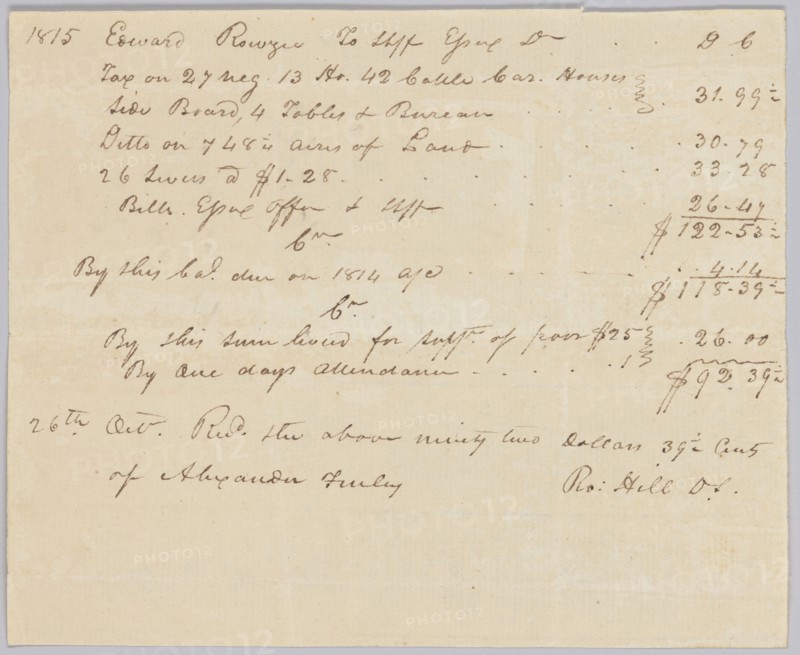 1815 Edward Rowzee To Shff Essex Dr D C
Tax on 27 neg. 13 Ho. 42 Cattle Car. Houses
Side Board, 4 Tables & Bureau 31.99½
Ditto on 748½ acres of Land 30.79
26 Levies @ $1.28 33.28
Bills. Essex Offrs & Shff 26.47
$122.53½
Cr
By this bal. due on 1814 a/c 4.14
$118.39½
Cr.
By this sum levied for suppt. of poor $25
By One days attendance 1 26.00
$92 39½
26th Octr. Recd. the above ninety two Dollars 39½ Cents
of Alexander Finley Ro: Hill D.S.
PHOTO12